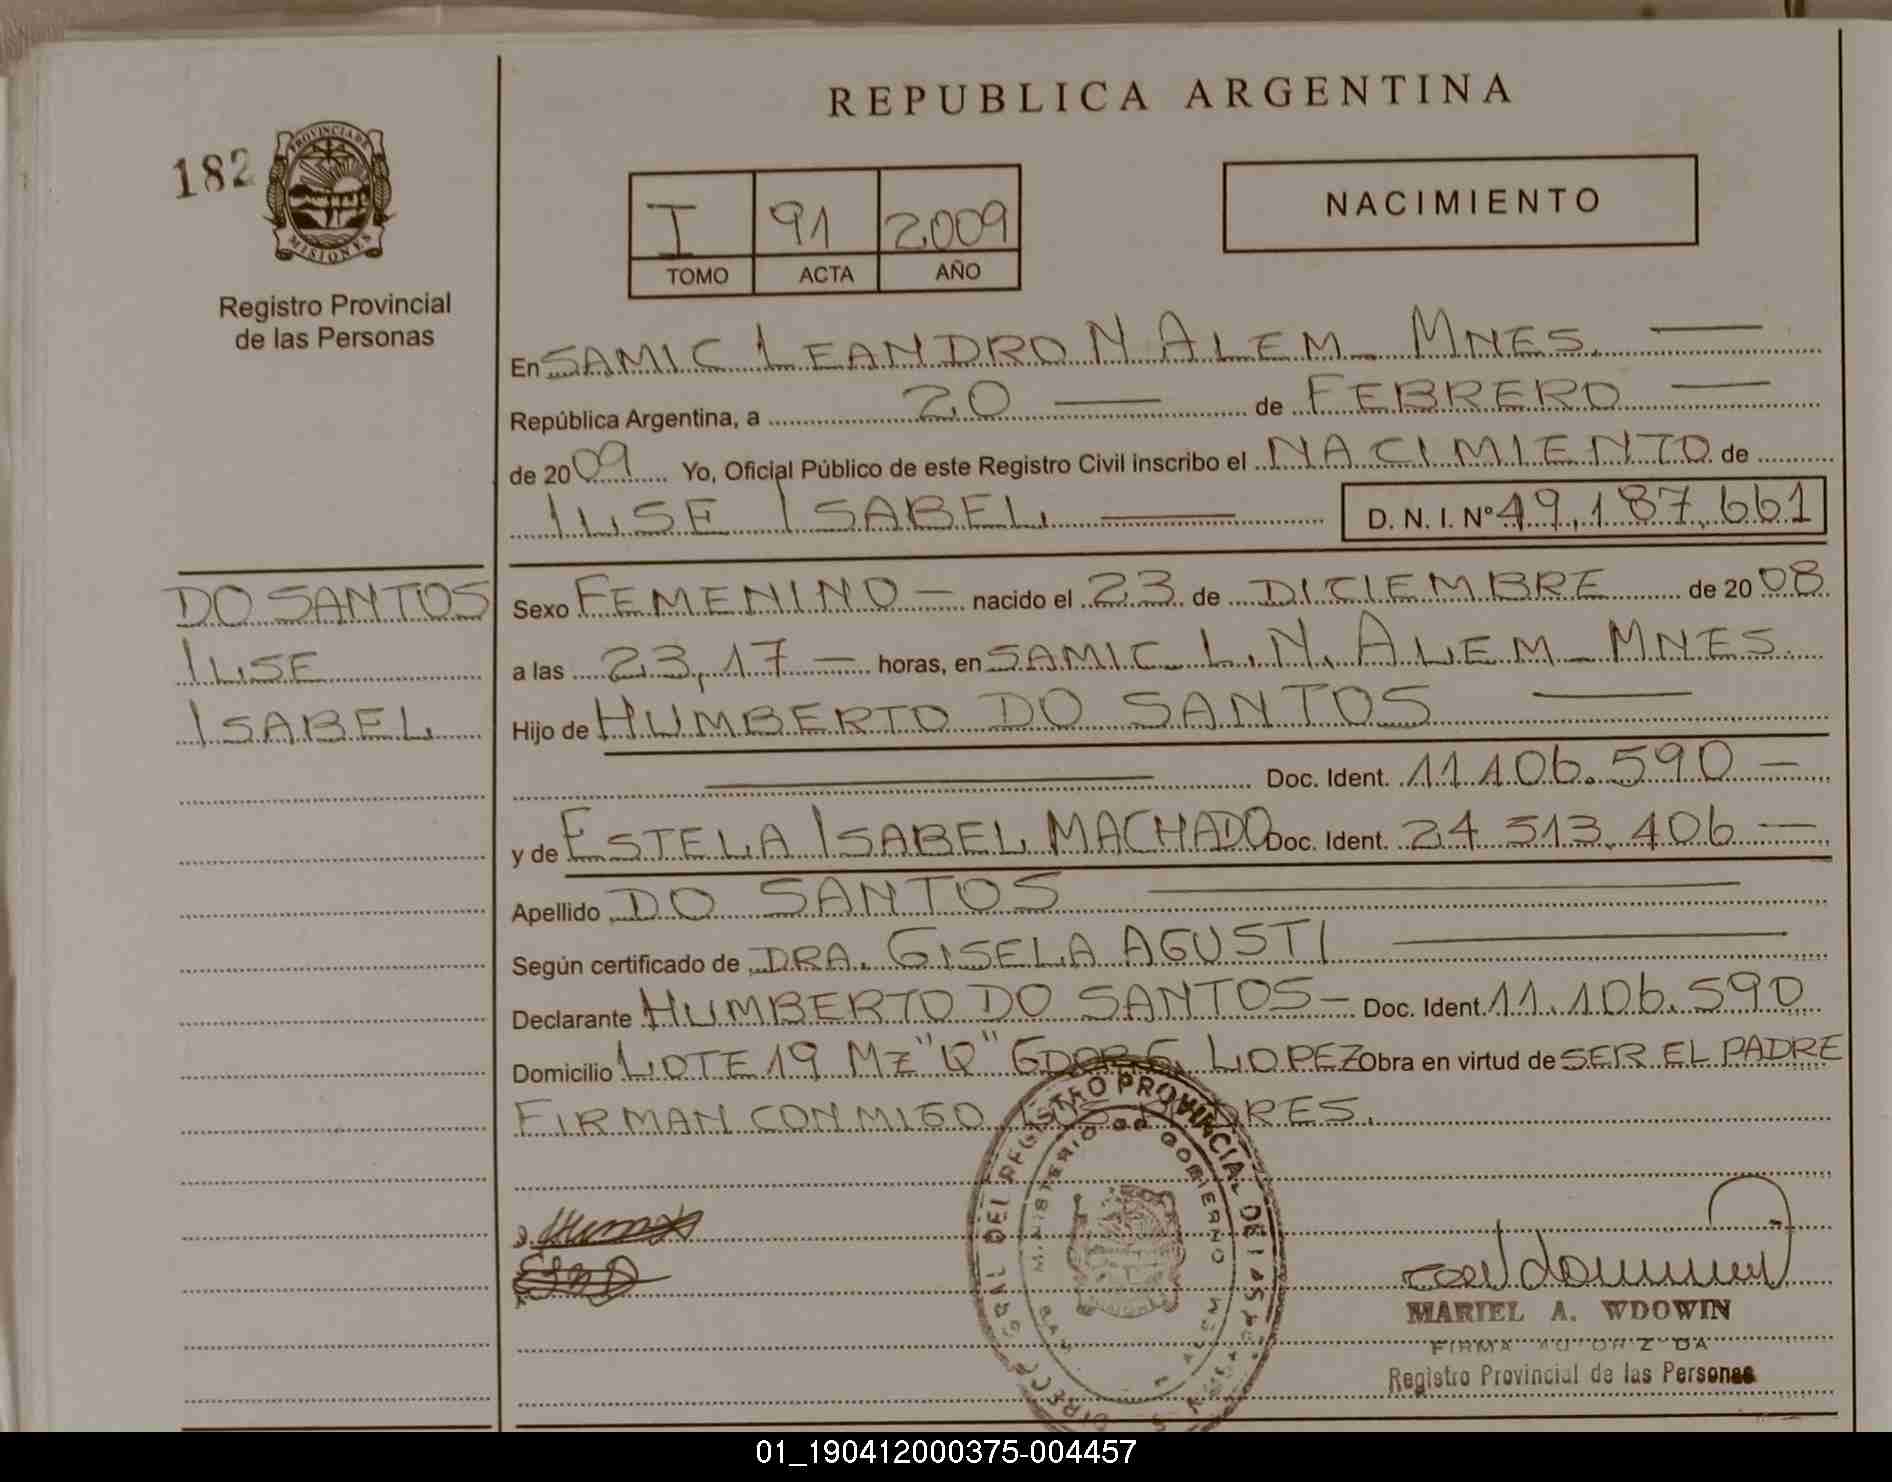 REPUBLICA ARGENTINA
182
PROVINCIA DE
MISIONES
Registro Provincial
de las Personas
I 91 2009
TOMO ACTA AÑO
NACIMIENTO
En SAMIC LEANDRO N ALEM - MNES.
República Argentina, a 20 de FEBRERO
de 2009 Yo, Oficial Público de este Registro Civil inscribo el NACIMIENTO de
ILSE ISABEL D. N. I. Nº 49.187.661
DO SANTOS
ILSE
ISABEL
Sexo FEMENINO - nacido el 23 de DICIEMBRE de 2008
a las 23,17 - horas, en SAMIC L.N. ALEM - MNES.
Hijo de HUMBERTO DO SANTOS
Doc. Ident. 11.106.590 -
y de ESTELA ISABEL MACHADO Doc. Ident. 24.513.406 -
Apellido DO SANTOS
Según certificado de DRA. GISELA AGUSTI
Declarante HUMBERTO DO SANTOS - Doc. Ident. 11.106.590
Domicilio LOTE 19 MZ "Q" GDOR G. LOPEZ Obra en virtud de SER EL PADRE
FIRMAN CONMIGO LOS PADRES.
REGISTRO PROVINCIAL DE LAS
MINISTERIO DE GOBIERNO
MARIEL A. WDOWIN
FIRMA AUTORIZADA
Registro Provincial de las Personas
01_190412000375-004457